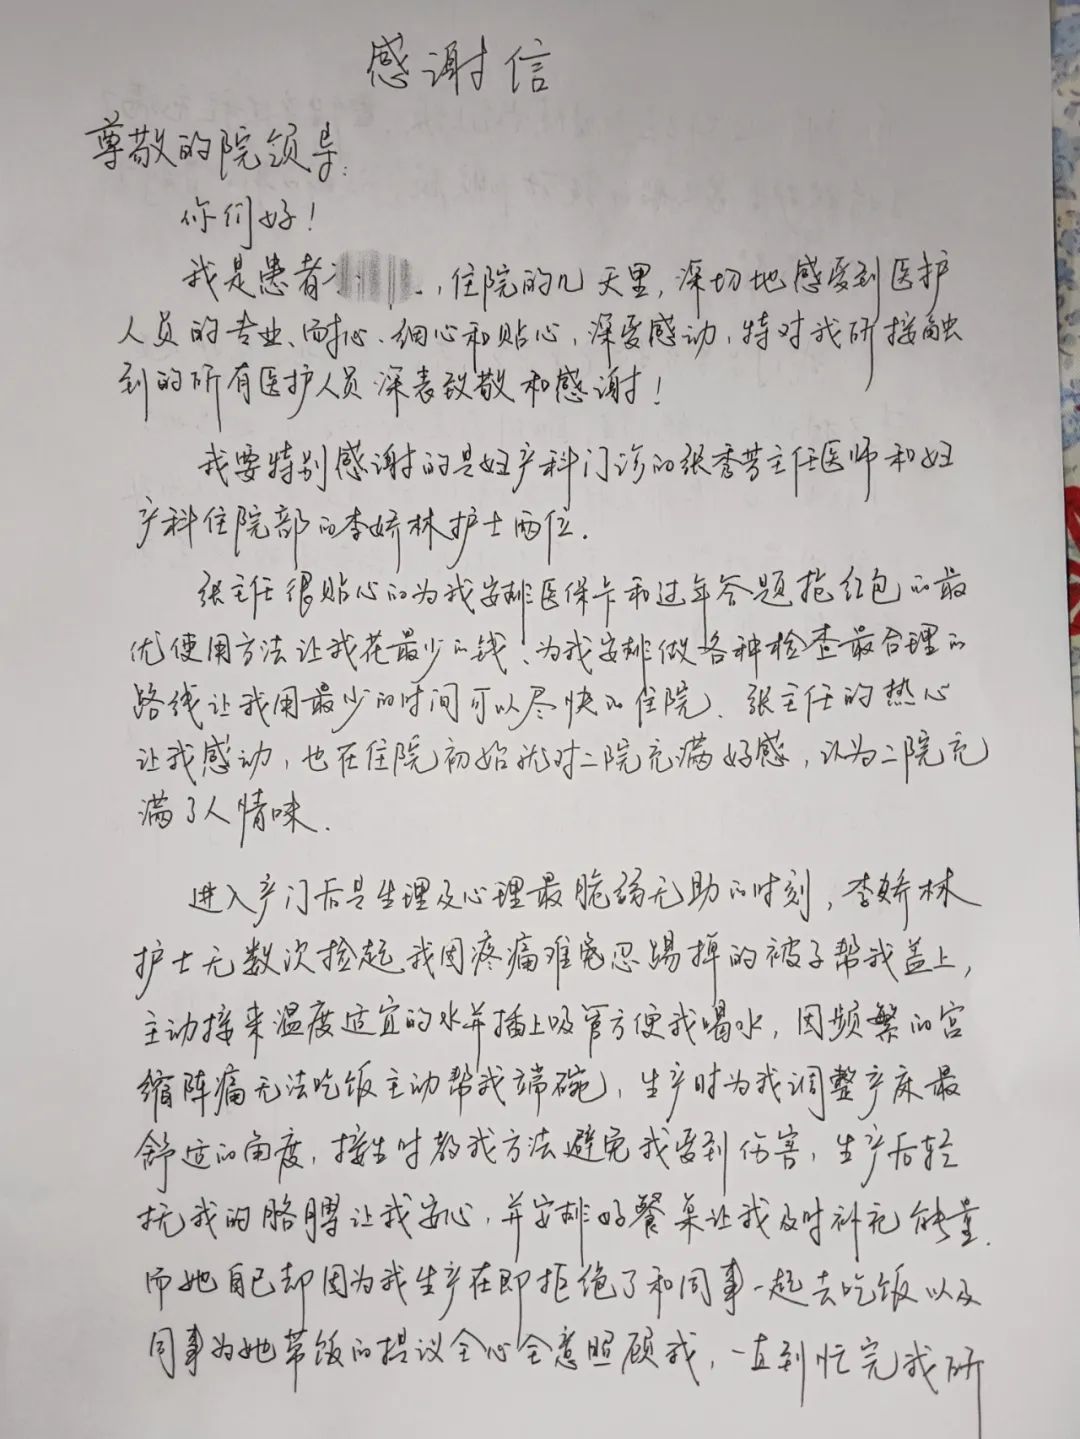 感谢信
尊敬的院领导:
你们好!
我是患者,住院的几天里,深切地感受到医护
人员的专业、耐心、细心和贴心,深受感动,特对我所接触
到的所有医护人员深表致敬和感谢!
我要特别感谢的是妇产科门诊的张秀芳主任医师和妇
产科住院部的李娇林护士两位.
张主任很贴心的为我安排医保卡和过年答题抢红包的最
优使用方法让我花最少的钱、为我安排做各种检查最合理的
路线让我用最少的时间可以尽快的住院、张主任的热心
让我感动,也在住院初始就对二院充满好感,认为二院充
满了人情味.
进入产门后是生理及心理最脆弱无助的时刻,李娇林
护士无数次捡起我因疼痛难免忍踢掉的被子帮我盖上,
主动接来温度适宜的水并插上吸管方便我喝水,因频繁的宫
缩阵痛无法吃饭主动帮我端碗,生产时为我调整产床最
舒适的角度,接生时教我方法避免我受到伤害,生产后轻
抚我的胳膊让我安心,并安排好餐桌让我及时补充能量.
而她自己却因为我生产在即拒绝了和同事一起去吃饭以及
同事为她带饭的提议全心全意照顾我,一直到忙完我所